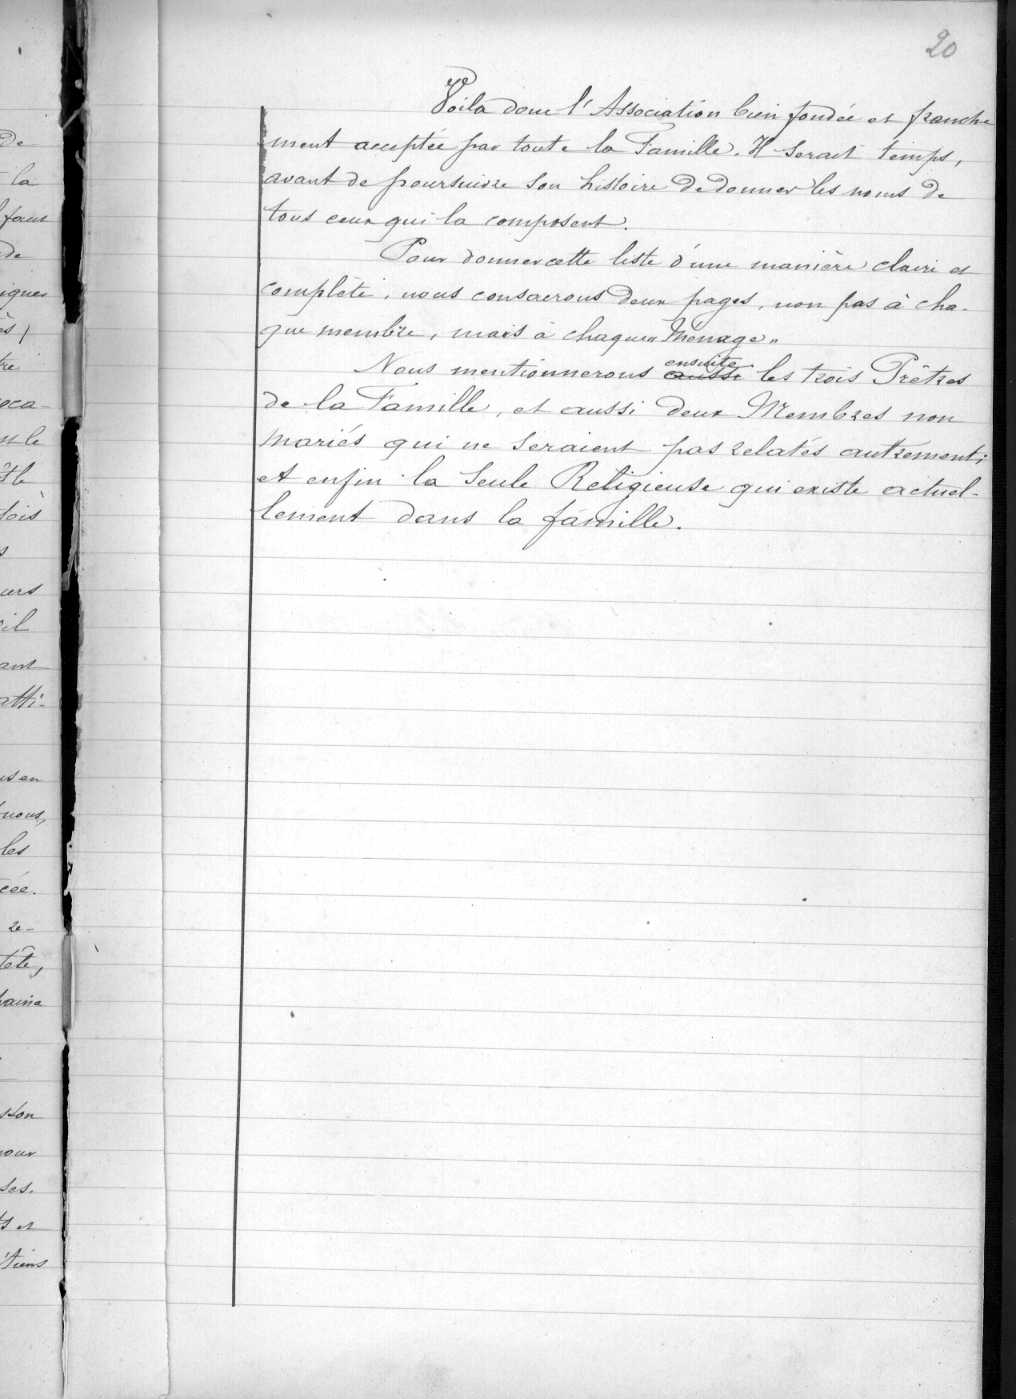 20
Voila donc l'Association bien fondée et franche
ment acceptée par toute la Famille. Il serait temps,
avant de poursuivre son histoire de donner les noms de
tous ceux qui la composent.
Pour donner cette liste d'une manière claire et
complète, nous consacrons deux pages, non pas à cha-
que membre, mais à chaque "Menage"
ensuite
Nous mentionnerons aussi les trois Prêtres
de la Famille, et aussi deux Membres non
mariés qui ne seraient pas relatés autrement;
et enfin la seule Religieuse qui existe actuel-
lement dans la famille.
de
la
de
iques
oca-
il
ant
atti-
nous,
les
cée.
re-
tête,
ses.